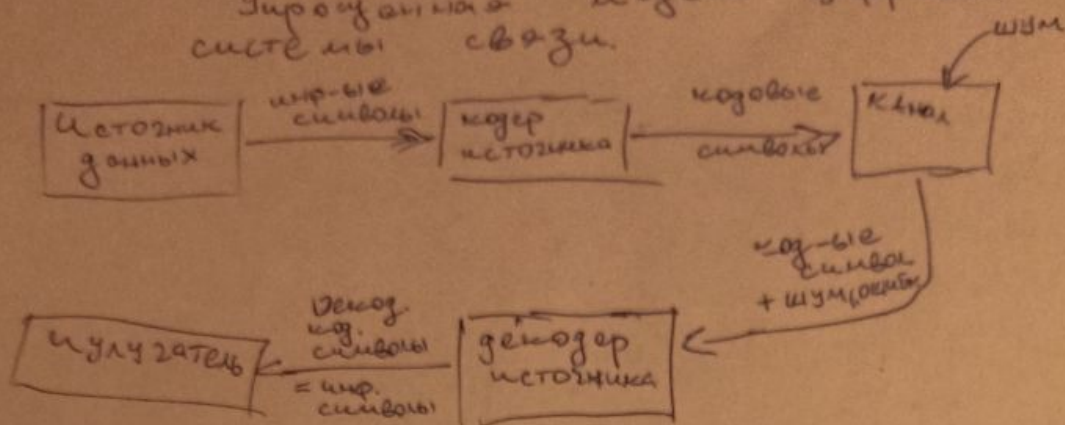 Упрощённая
системы связи.
шум
Источник
данных
инф-ые
символы
кодер
источника
кодовые
символы
канал
код-ые
символ
+ шум
декодер
источника
Декод.
код.
символы
= инф.
символы